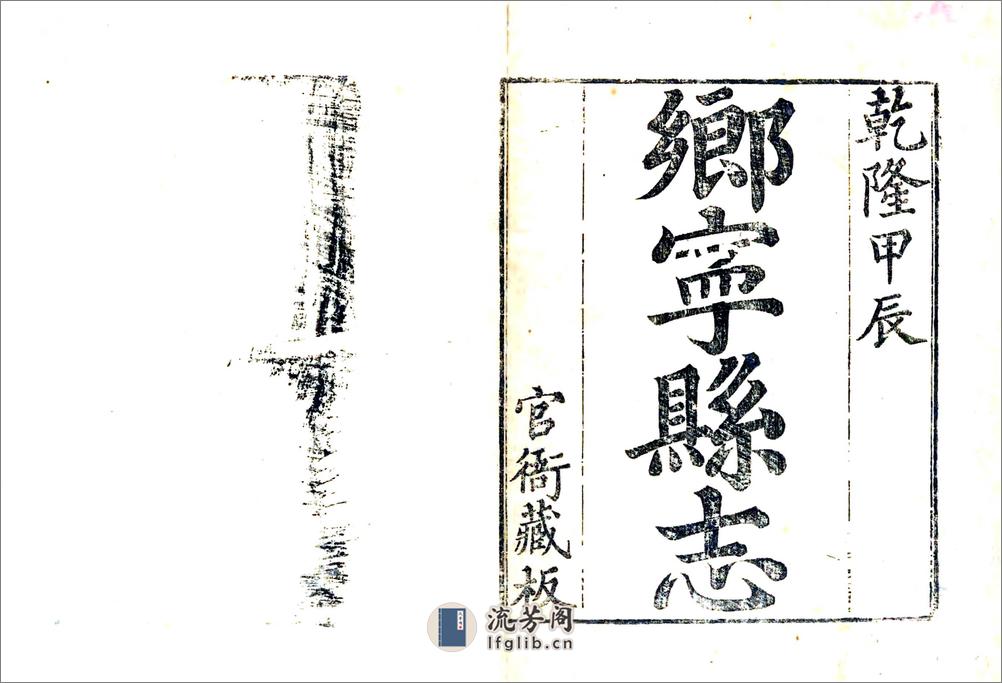 乾隆甲辰
鄉寧縣志
官衙藏板
流芳阁
lfglib.cn